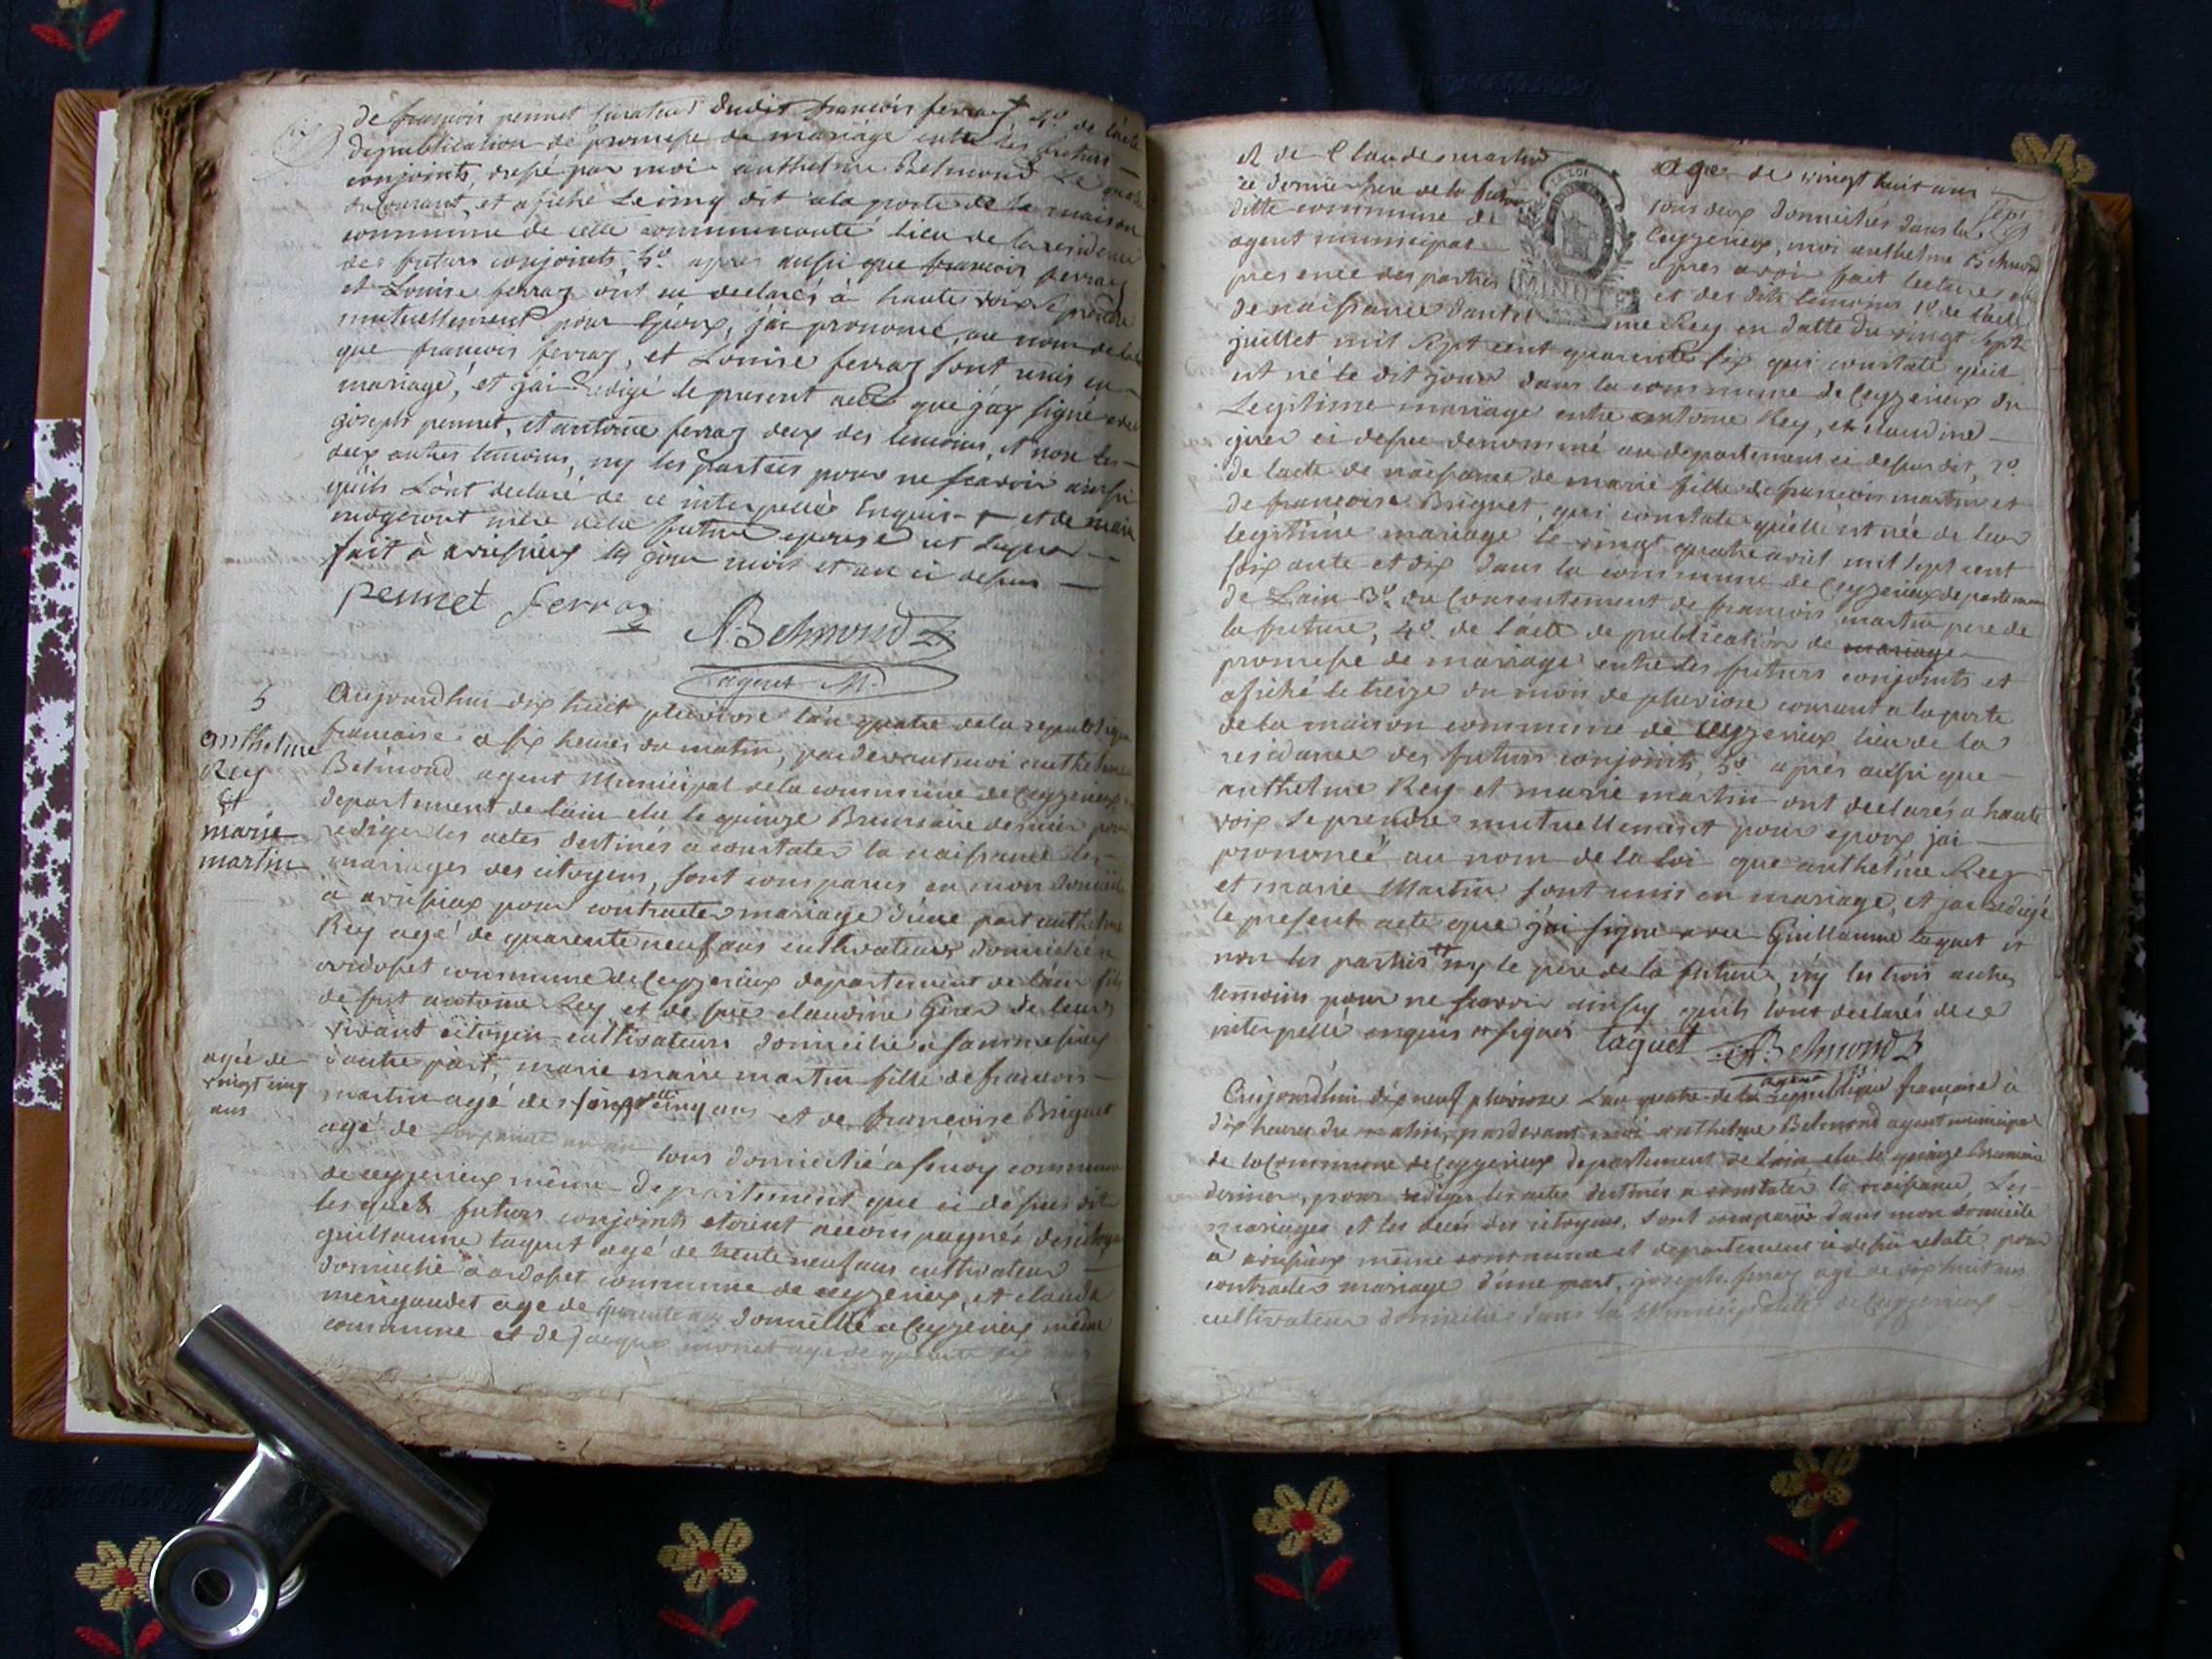 de françois pennet curateur dudit françois ferraz, 4o. de l'acte
de publication de promesse de mariage entre les futurs
conjoints, dressé par moi anthelme Belmond le
du courant, et afiché le cinq dit a la porte de la maison
commune de cette communauté lieu de la residence
des futurs conjoints, 5o. apres aussi que francois ferraz
et Louise ferraz ont eu declarés à haute voix se prendre
mutuellement pour Epoux, j'ai prononcé, au nom de la loi
que francois ferraz, et Louise ferraz sont unis en
mariage, et j'ai Redigé le present acte que j'ay signé avec
joseph pennet, et antoine ferraz deux des temoins, et non les
deux autres temoins, ny les parties pour ne scavoir ainsi
qu'ils L'ont declaré de ce interpellés Enquis et de
mere de la future epouse et
fait à avrissieux les jour mois et an ci dessus
pennet ferraz
A. Belmond
agent M.
5
anthelme
Rey
Et
marie
martin
Aujourdhui dix huit pluviose l'an quatre de la republique
francaise a six heures du matin, pardevant moi anthelme
Belmond agent Municipal de la commune de Ceyzerieux
departement de l'ain elu le quinze Brumaire dernier pour
rediger les actes destinés a constater la naissance les
mariages des citoyens, sont comparus en mon domicile
a avrissieux pour contracter mariage d'une part anthelme
Rey agé de quarente neuf ans cultivateur domicilié a
ardosset commune de Ceyzerieux departement de l'ain fils
de fut antoine Rey et de fuë claudine Girer de leur
vivant citoyen cultivateurs domicilié a
d'autre part, marie marie martin fille de francois
agée de
vingt cinq
ans
martin agé de ans et de francoise Briguet
agé de tous domicilié a commune
de ceyzerieux même departement que ci dessus dit
les quels futurs conjoints etoient accompagnés des citoyens
guillaume taguet agé de trente neuf ans cultivateur
domicilié a ardosset commune de ceyzerieux, et claude
agé de quarente domicilié a Ceyzerieux même
commune et de jacque monet agé de quarente six ans
et de Claude martin agé de vingt huit ans
ce dernier frere de la future tous deux domiciliés dans la
ditte commune de Ceyzerieux, moi anthelme Belmond
agent municipal apres avoir fait lecture en
presence des parties et des dits temoins 1o. de l'acte
de naissance d'anthelme Rey en datte du vingt sept
juillet mil sept cent quarente six qui constate qu'il
est né le dit jour dans la commune de Ceyzerieux du
Legitime mariage entre antoine Rey, et claudine
girer ci dessus denommé au departement ci dessus dit, 2o.
de lacte de naissance de marie fille de francois martin et
de francoise Briguet, qui constate qu'elle est née de leur
legitime mariage le vingt quatre avril mil sept cent
soixante et dix dans la commune de Ceyzerieux departement
de Lain 3o. du Consentement de francois martin pere de
la future, 4o. de l'acte de publication de mariage
promesse de mariage entre les futurs conjoints et
afiché le treize du mois de pluviose courant a la porte
de la maison commune de ceyzerieux lieu de la
residance des futurs conjoints, 5o. apres aussi que
anthelme Rey et marie martin ont declarés a haute
voix se prendre mutuellement pour epoux jai
prononcé au nom de la loi que anthelme Rey
et marie Martin sont unis en mariage, et jai redigé
le present acte que j'ai signé avec Guillaume taguet et
non les parties ny le pere de la future, ny les trois autres
temoins pour ne scavoir ainsy qu'ils l'ont declarés de ce
interpellé enquis et signés taguet A. Belmond
agent
Aujourdhui dix neuf pluviose L'an quatre de la republique française à
dix heures du matin, pardevant moi anthelme Belmond agent municipal
de la Commune de Ceyzerieux departement de l'ain elu le quinze Brumaire
dernier, pour rediger les actes destinés a constater la naissance, Les
mariages et les decés des citoyens, sont comparus dans mon domicile
à avrissieux même commune et departement ci dessus relaté pour
contracter mariage d'une part, joseph ferraz agé de dix huit ans
cultivateur domicilié dans la Municipalité de Ceyzerieux
LA LOI
MINUTE